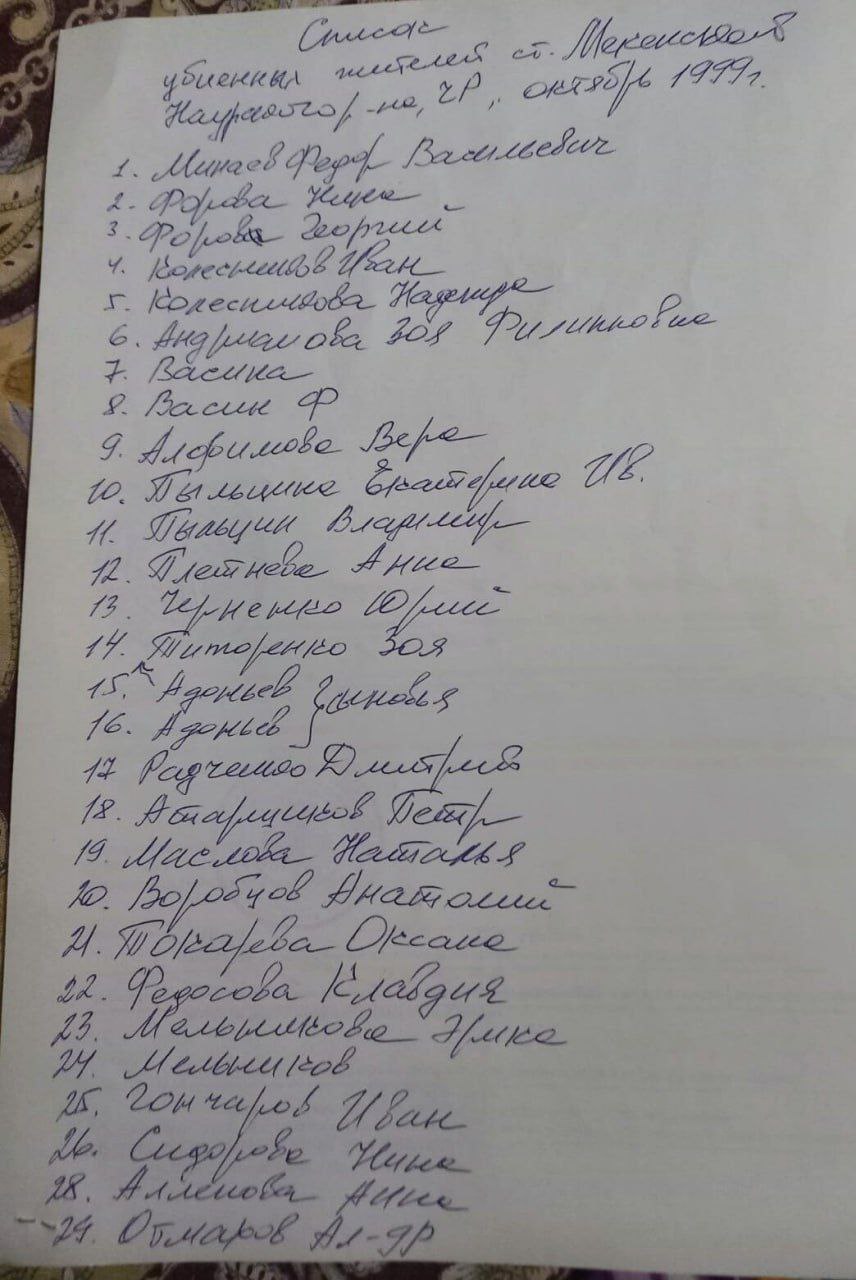 Список
убиенных жителей ст. Мекенской
Наурского р-на, ЧР, октябрь 1999г.
1. Минаев Федор Васильевич
2. Форова Нина
3. Форов Георгий
4. Колесников Иван
5. Колесникова Надежда
6. Андрианова Зоя Филипповна
7. Васина
8. Васин Ф
9. Алфимова Вера
10. Пыльцина Екатерина Ив.
11. Пыльцин Владимир
12. Плетнева Анна
13. Черненко Юрий
14. Титоренко Зоя
15. Адоньев } сыновья
16. Адоньев
17 Радченко Дмитрий
18. Атарщиков Петр
19. Маслова Наталья
20. Воробцов Анатолий
21. Токарева Оксана
22. Федосова Клавдия
23. Мельникова
24. Мельников
25. Гончаров Иван
26. Сидорова Нина
28. Алленова Анна
29. Отмаров Ал-др